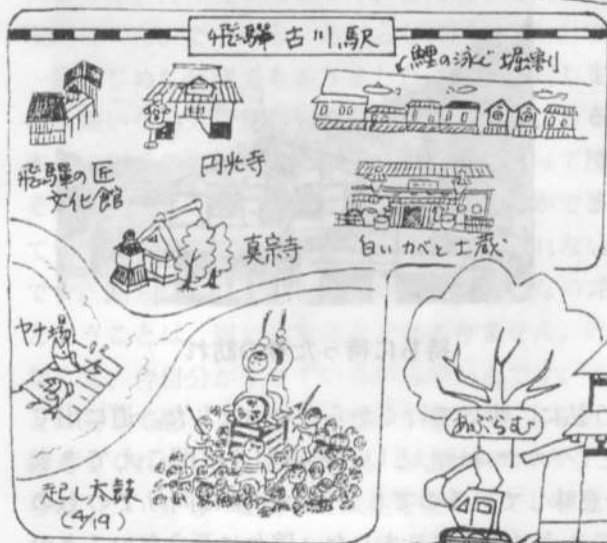 飛驒古川駅
鯉の泳ぐ堀割
飛驒の匠
文化館
円光寺
真宗寺
白いかべと土蔵
ヤナ場
起し太鼓
(4/19)
あぶらむ